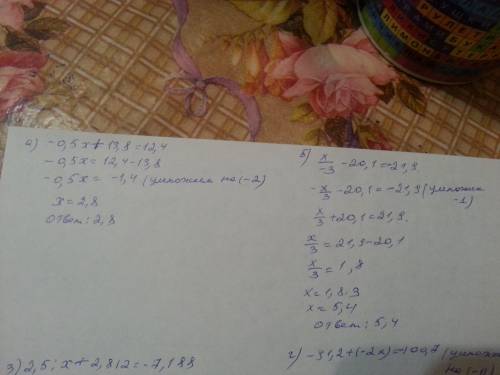 а) -0,5x+13,8=12,4
-0,5x=12,4-13,8
-0,5x= -1,4 (умножим на (-2)
x=2,8
ответ: 2,8
б) x/-3 -20,1=-21,9
-x/3-20,1=-21,9 (умножим
-1)
x/3+20,1=21,9.
x/3=21,9-20,1
x/3=1,8
x=1,8·3
x=5,4
ответ: 5,4
3) 2,5:x+2,812=-7,188
г) -31,2+(-2x)=-100,7 (умножим
на (-1)
РУЛЕТ
ЛИМОН